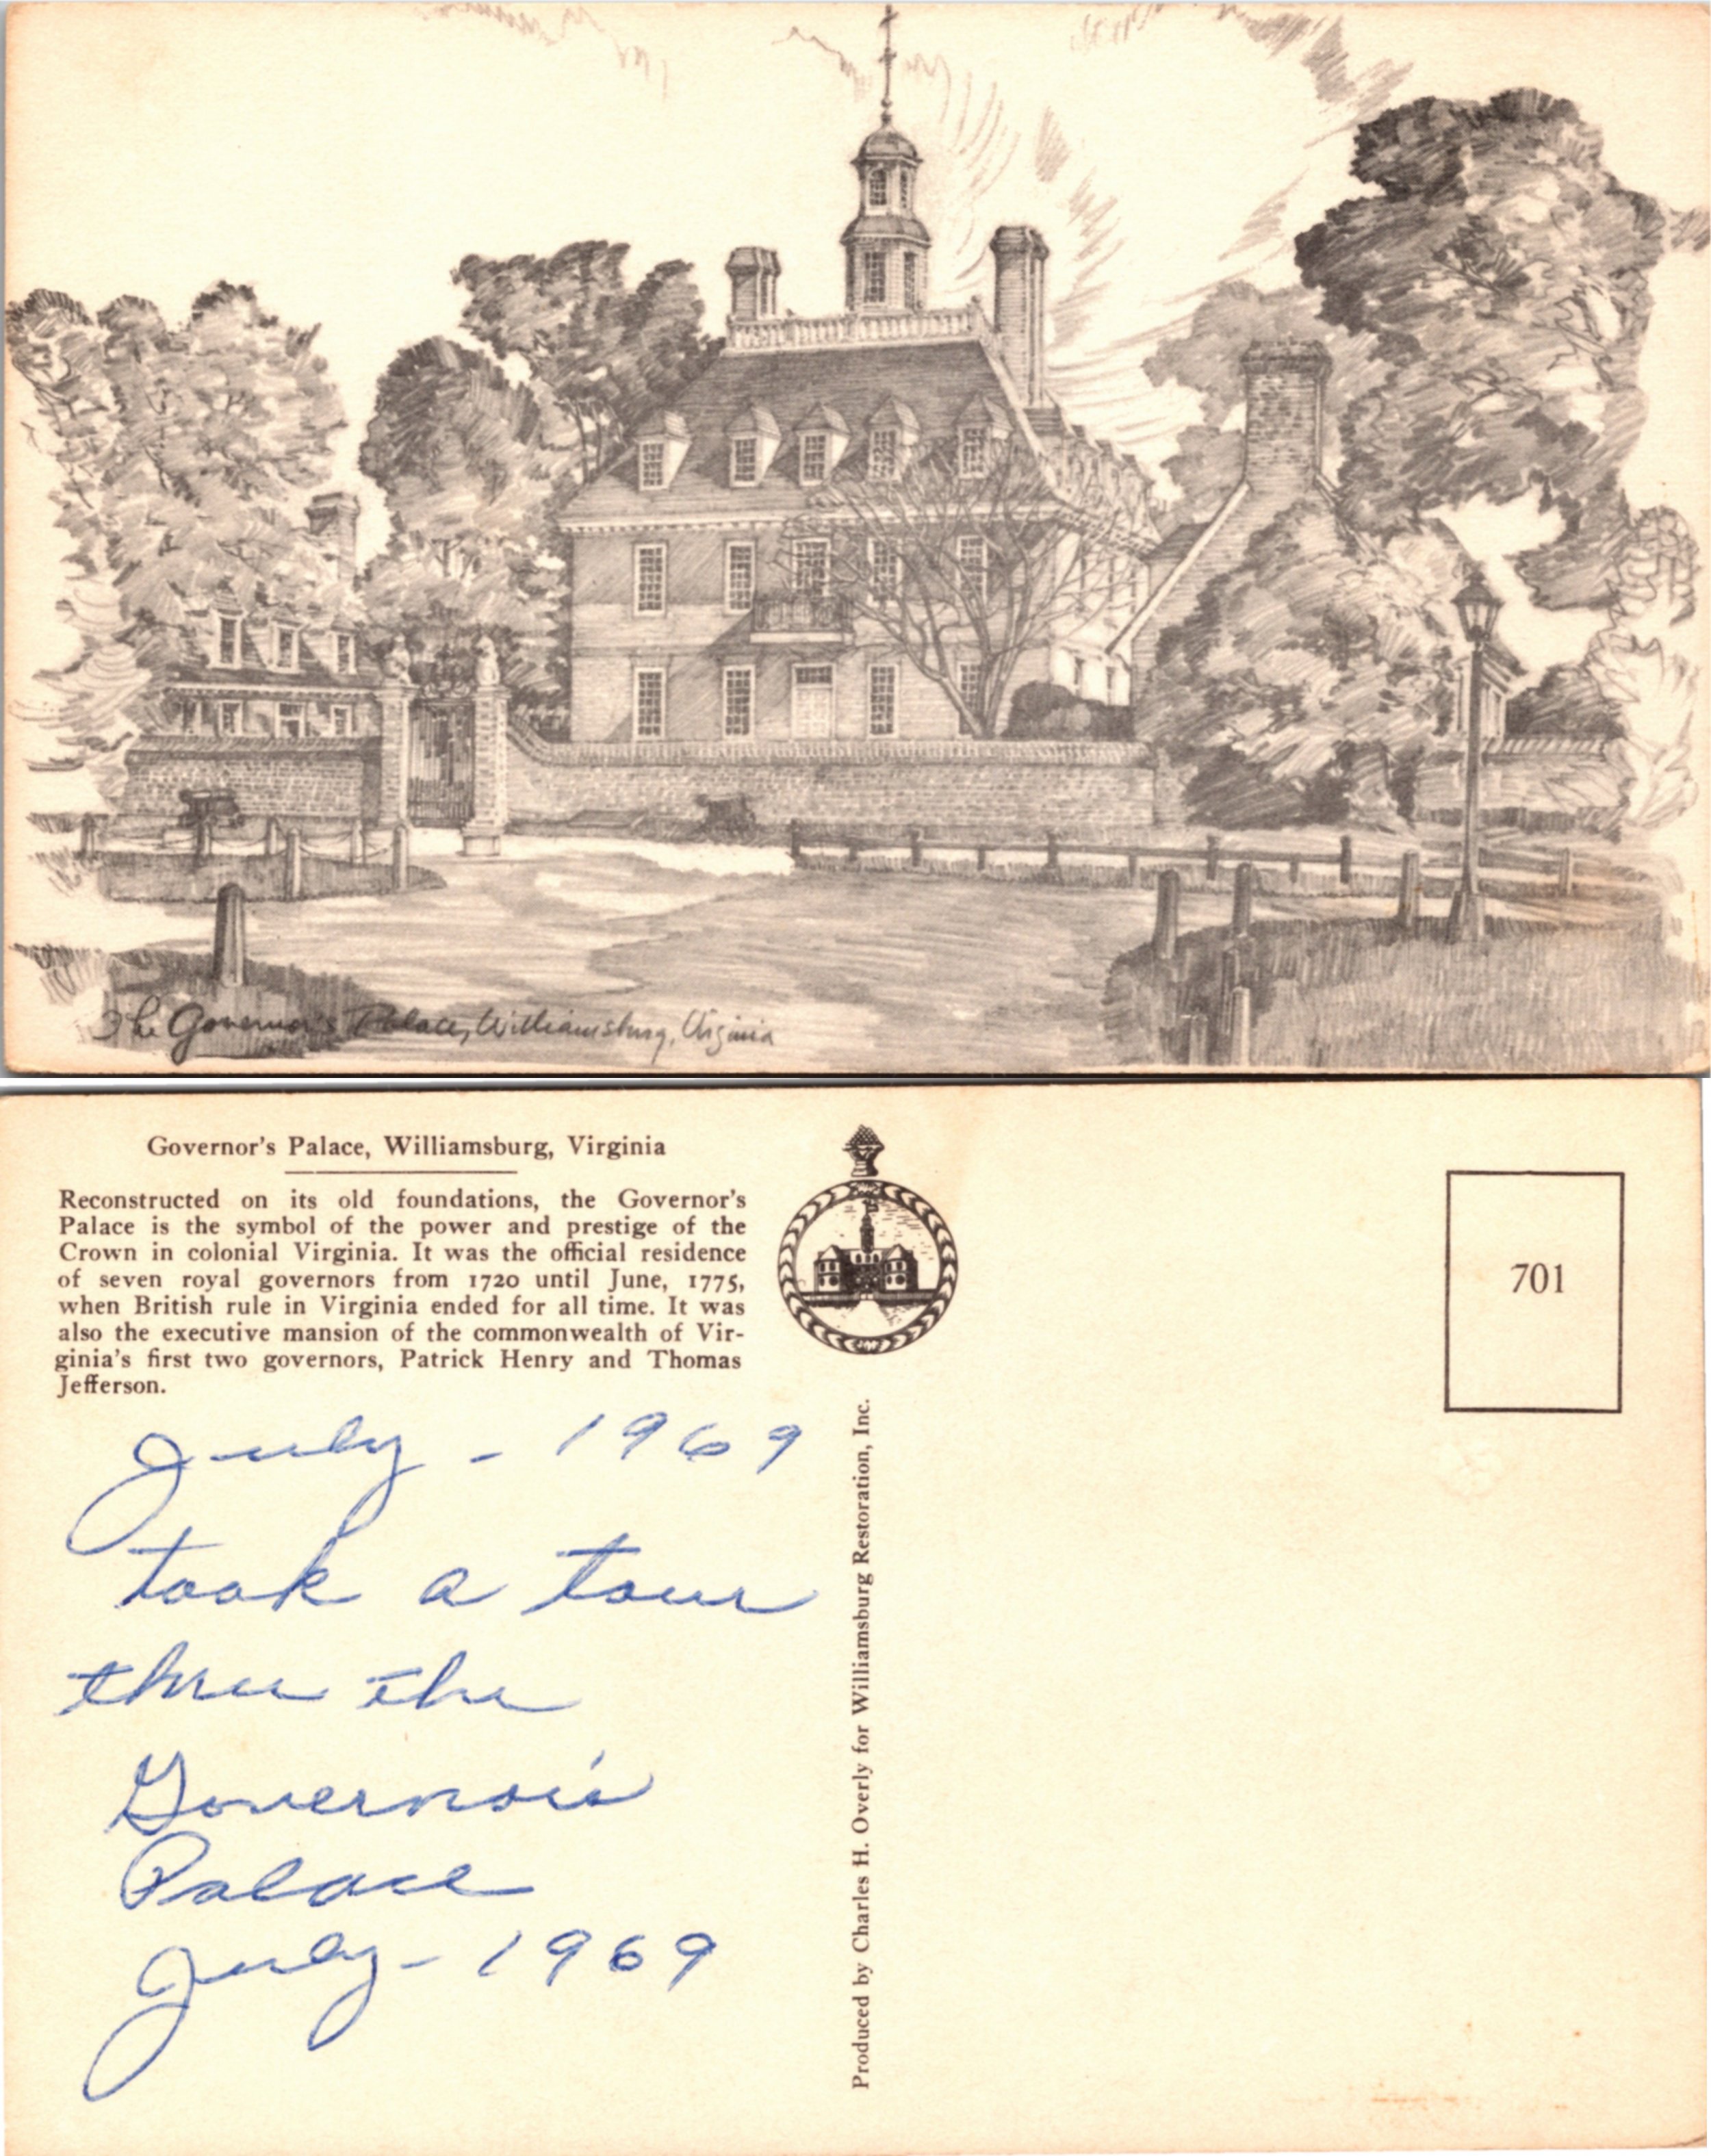 The Governor's Palace, Williamsburg, Virginia
Governor's Palace, Williamsburg, Virginia
Reconstructed on its old foundations, the Governor's
Palace is the symbol of the power and prestige of the
Crown in colonial Virginia. It was the official residence
of seven royal governors from 1720 until June, 1775,
when British rule in Virginia ended for all time. It was
also the executive mansion of the commonwealth of Vir-
ginia's first two governors, Patrick Henry and Thomas
Jefferson.
July - 1969
took a tour
thru the
Governor's
Palace
July - 1969
Produced by Charles H. Overly for Williamsburg Restoration, Inc.
701